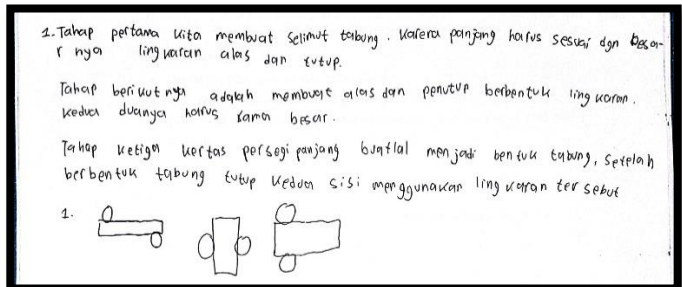 1. Tahap pertama kita membuat selimut tabung. Karena panjang harus sesuai dgn besar-
r nya lingkaran alas dan tutup.
Tahap berikutnya adalah membuat alas dan penutup berbentuk lingkaran.
kedua duanya harus sama besar.
Tahap ketiga kertas persegi panjang buatlal menjadi bentuk tabung, setelah
berbentuk tabung tutup kedua sisi menggunakan lingkaran tersebut
1.